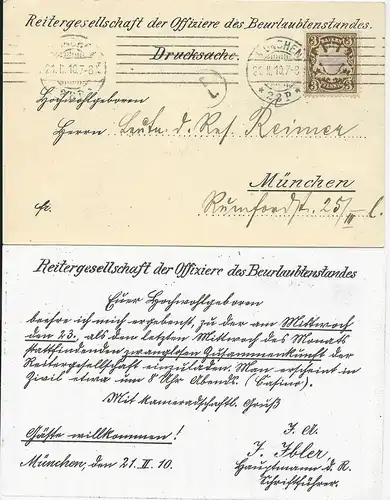 Reitergesellschaft der Offiziere des Beurlaubtenstandes.
Drucksache.
MÜNCHEN
21.II.10.7-8
2BP
BAYERN
3
PFENNIG
Hochwohlgeboren
Herrn Leutn. d. Res. Reimer
München
fr.
Rumfordstr. 25/III l.
Reitergesellschaft der Offiziere des Beurlaubtenstandes
Euer Hochwohlgeboren
beehre ich mich ergebenst, zu der am Mittwoch
den 23. als dem letzten Mittwoch des Monats
stattfindenden zwanglosen Zusammenkunft der
Reitergesellschaft einzuladen. Man erscheint in
Zivil etwa um 8 Uhr Abends. (Casino).
Mit kameradschaftl. Gruß
Gäste willkommen!
J. A.
J. Ibler
München, den 21. II. 10.
Hauptmann d. R.
Schriftführer.